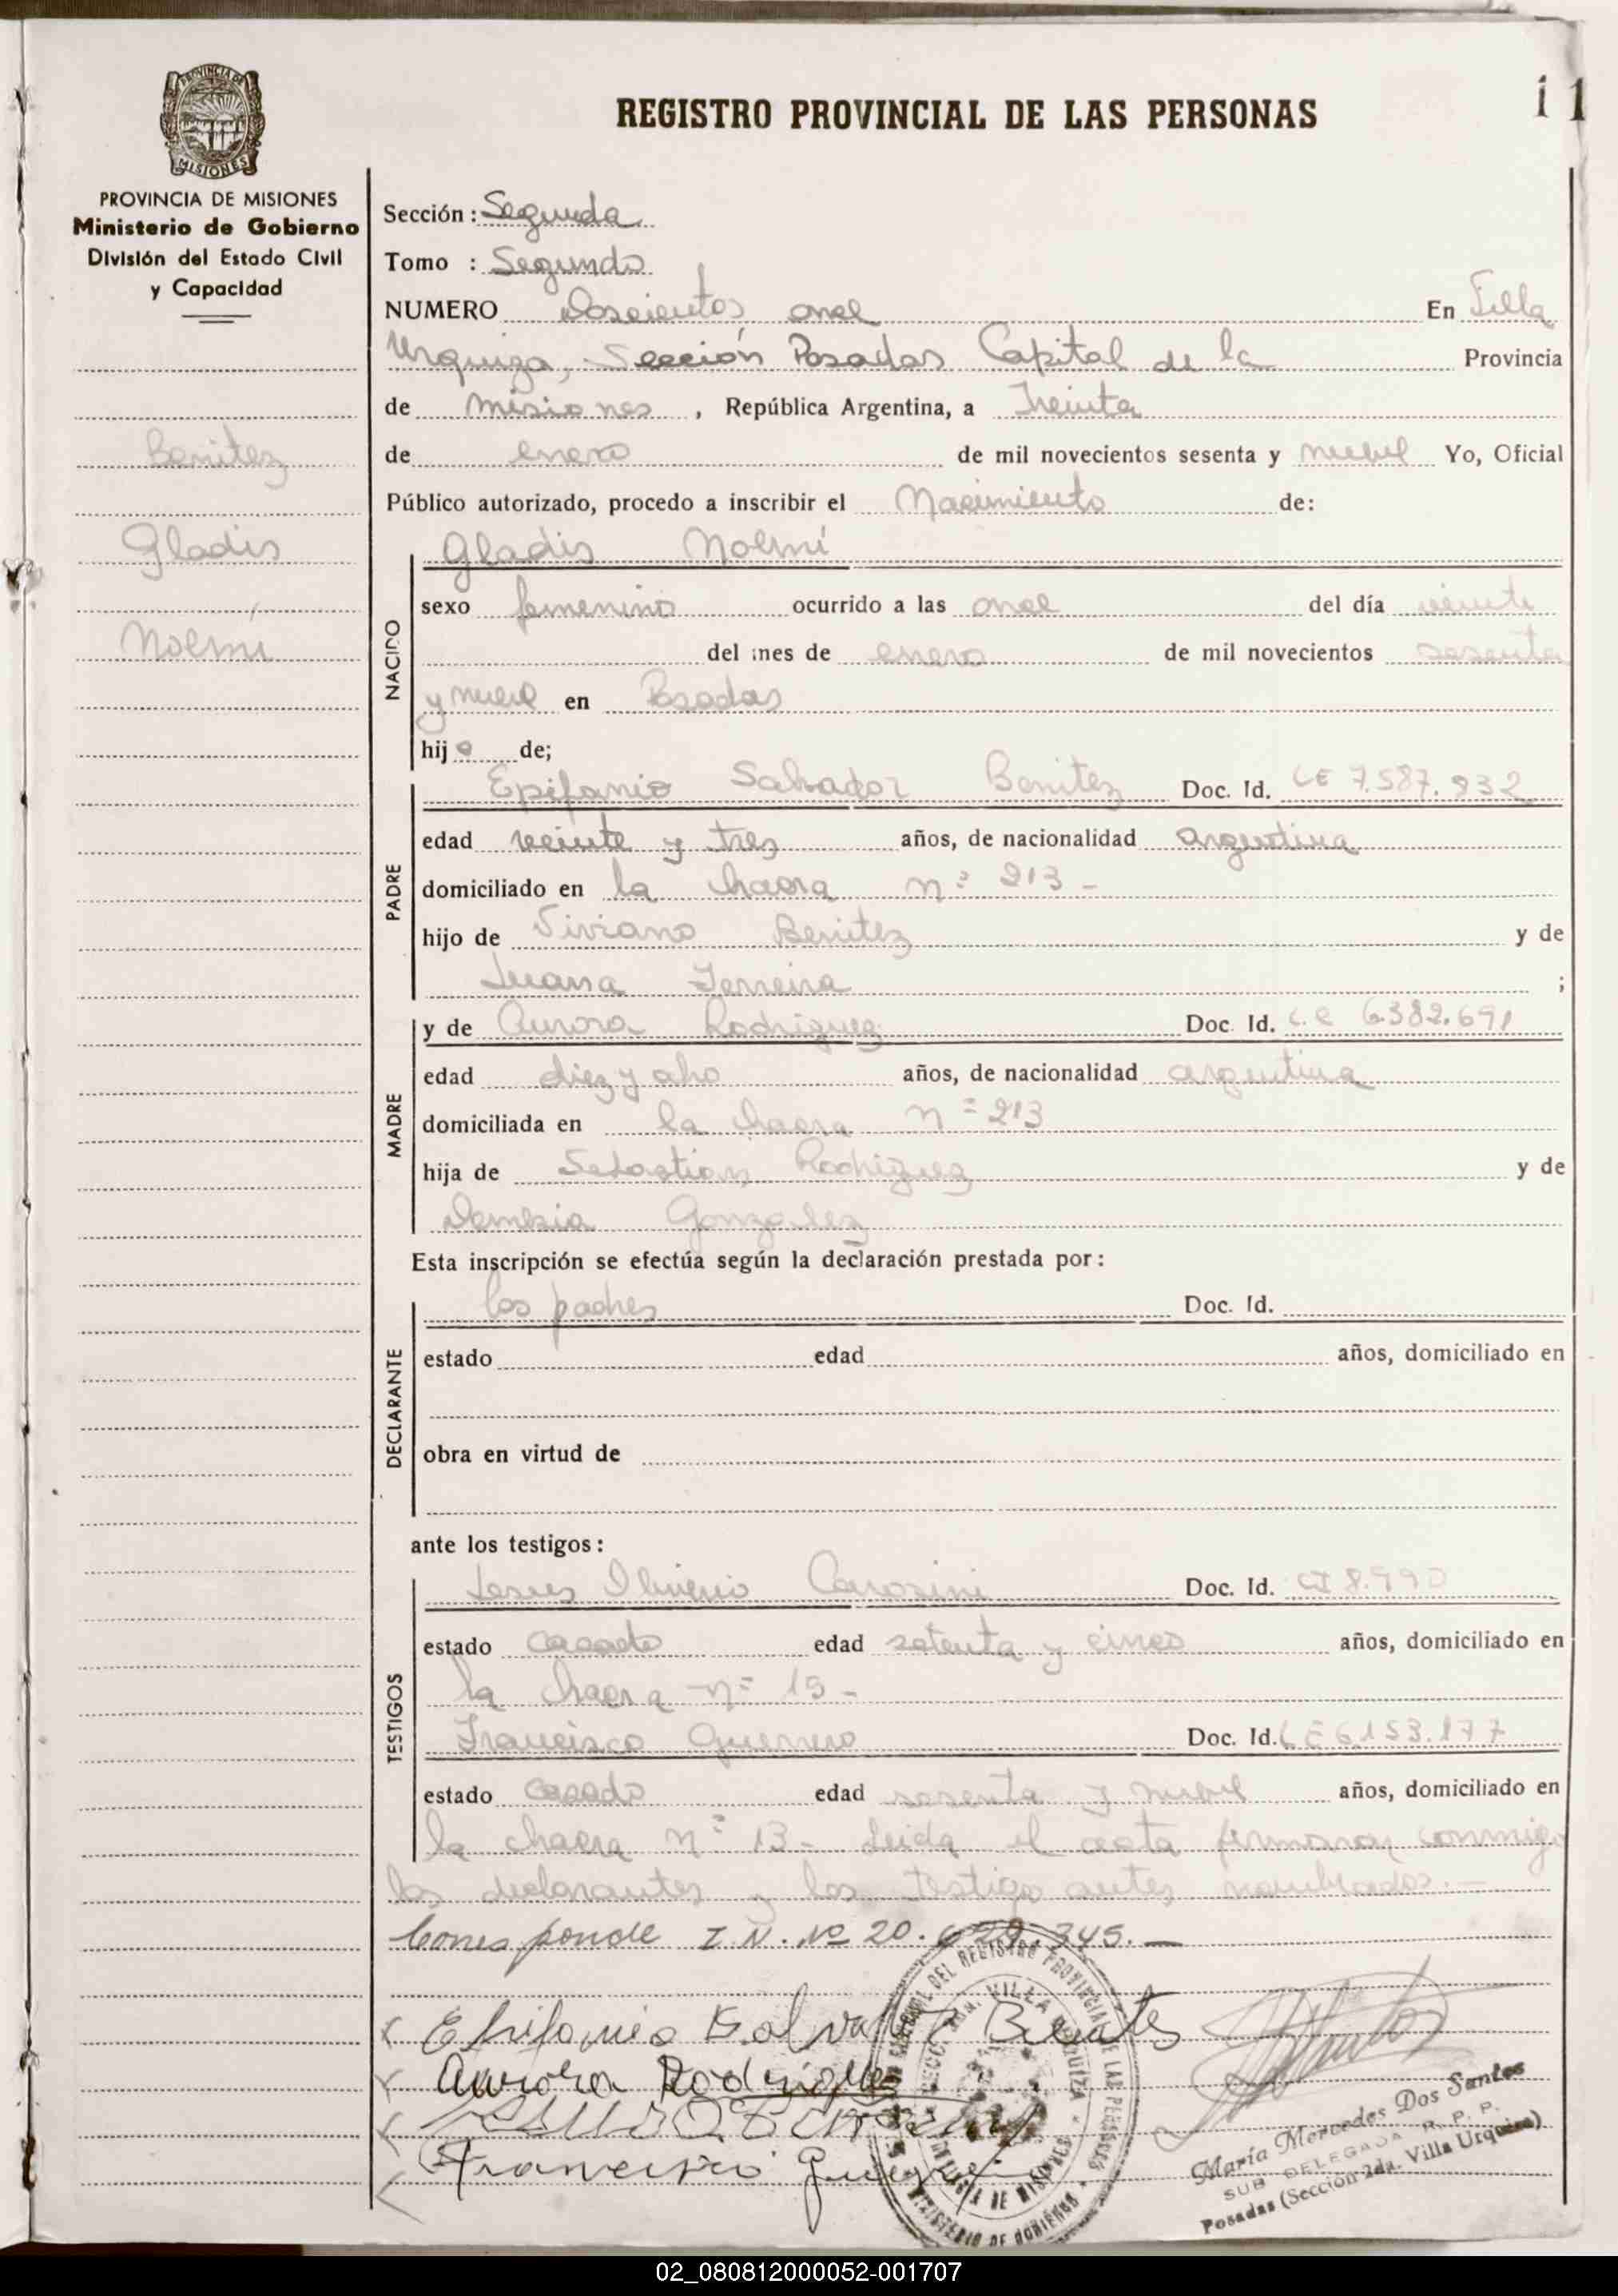 11
REGISTRO PROVINCIAL DE LAS PERSONAS
PROVINCIA DE MISIONES
MISIONES
PROVINCIA DE MISIONES
Ministerio de Gobierno
División del Estado Civil
y Capacidad
Benitez
Gladis
Noemí
Sección : Segunda
Tomo : Segundo
NUMERO Doscientos once En Villa
Urquiza, Sección Posadas Capital de la Provincia
de misiones , República Argentina, a Treinta
de enero de mil novecientos sesenta y nueve Yo, Oficial
Público autorizado, procedo a inscribir el Nacimiento de:
NACIDO
Gladis Noemí
sexo femenino ocurrido a las once del día veinte
del mes de enero de mil novecientos sesenta
y nueve en Posadas
hij a de;
PADRE
Epifanio Salvador Benitez Doc. Id. LE 7.587.932
edad veinte y tres años, de nacionalidad argentina
domiciliado en la chacra nº 213 -
hijo de Viviano Benitez y de
Juana Ferreira ;
MADRE
y de Aurora Rodriguez Doc. Id. L.C 6.382.691
edad diez y ocho años, de nacionalidad argentina
domiciliada en la chacra nº 213
hija de Sebastian Rodriguez y de
Gonzalez
Esta inscripción se efectúa según la declaración prestada por :
DECLARANTE
los padres Doc. Id.
estado edad años, domiciliado en
obra en virtud de
ante los testigos :
TESTIGOS
Jesus Carosini Doc. Id. CI 8.990
estado casado edad setenta y cinco años, domiciliado en
la chacra nº 15 -
Francisco Guerrero Doc. Id. LE 6.153.177
estado casado edad sesenta y nueve años, domiciliado en
la chacra nº 13 - Leida el acta firmaron conmigo
los declarantes y los testigo antes nombrados. -
Corresponde I.N. Nº 20.629.345. -
Epifanio Salvador Benites
Aurora Rodriguez
Francisco Guerrero
DEL REGISTRO PROVINCIAL DE LAS PERSONAS
VILLA URQUIZA
MINISTERIO DE GOBIERNO
PROVINCIA DE MISIONES
María Mercedes Dos Santos
SUB DELEGADA R. P. P.
Posadas (Sección 2da. Villa Urquiza)
02_080812000052-001707